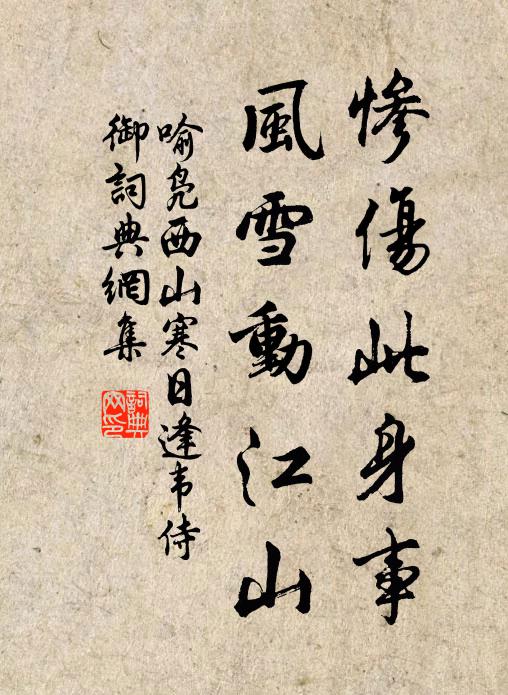 慘傷此身事
風雪動江山
喻鳧西山寒日逢韦侍
御詞典網集
詞典网印